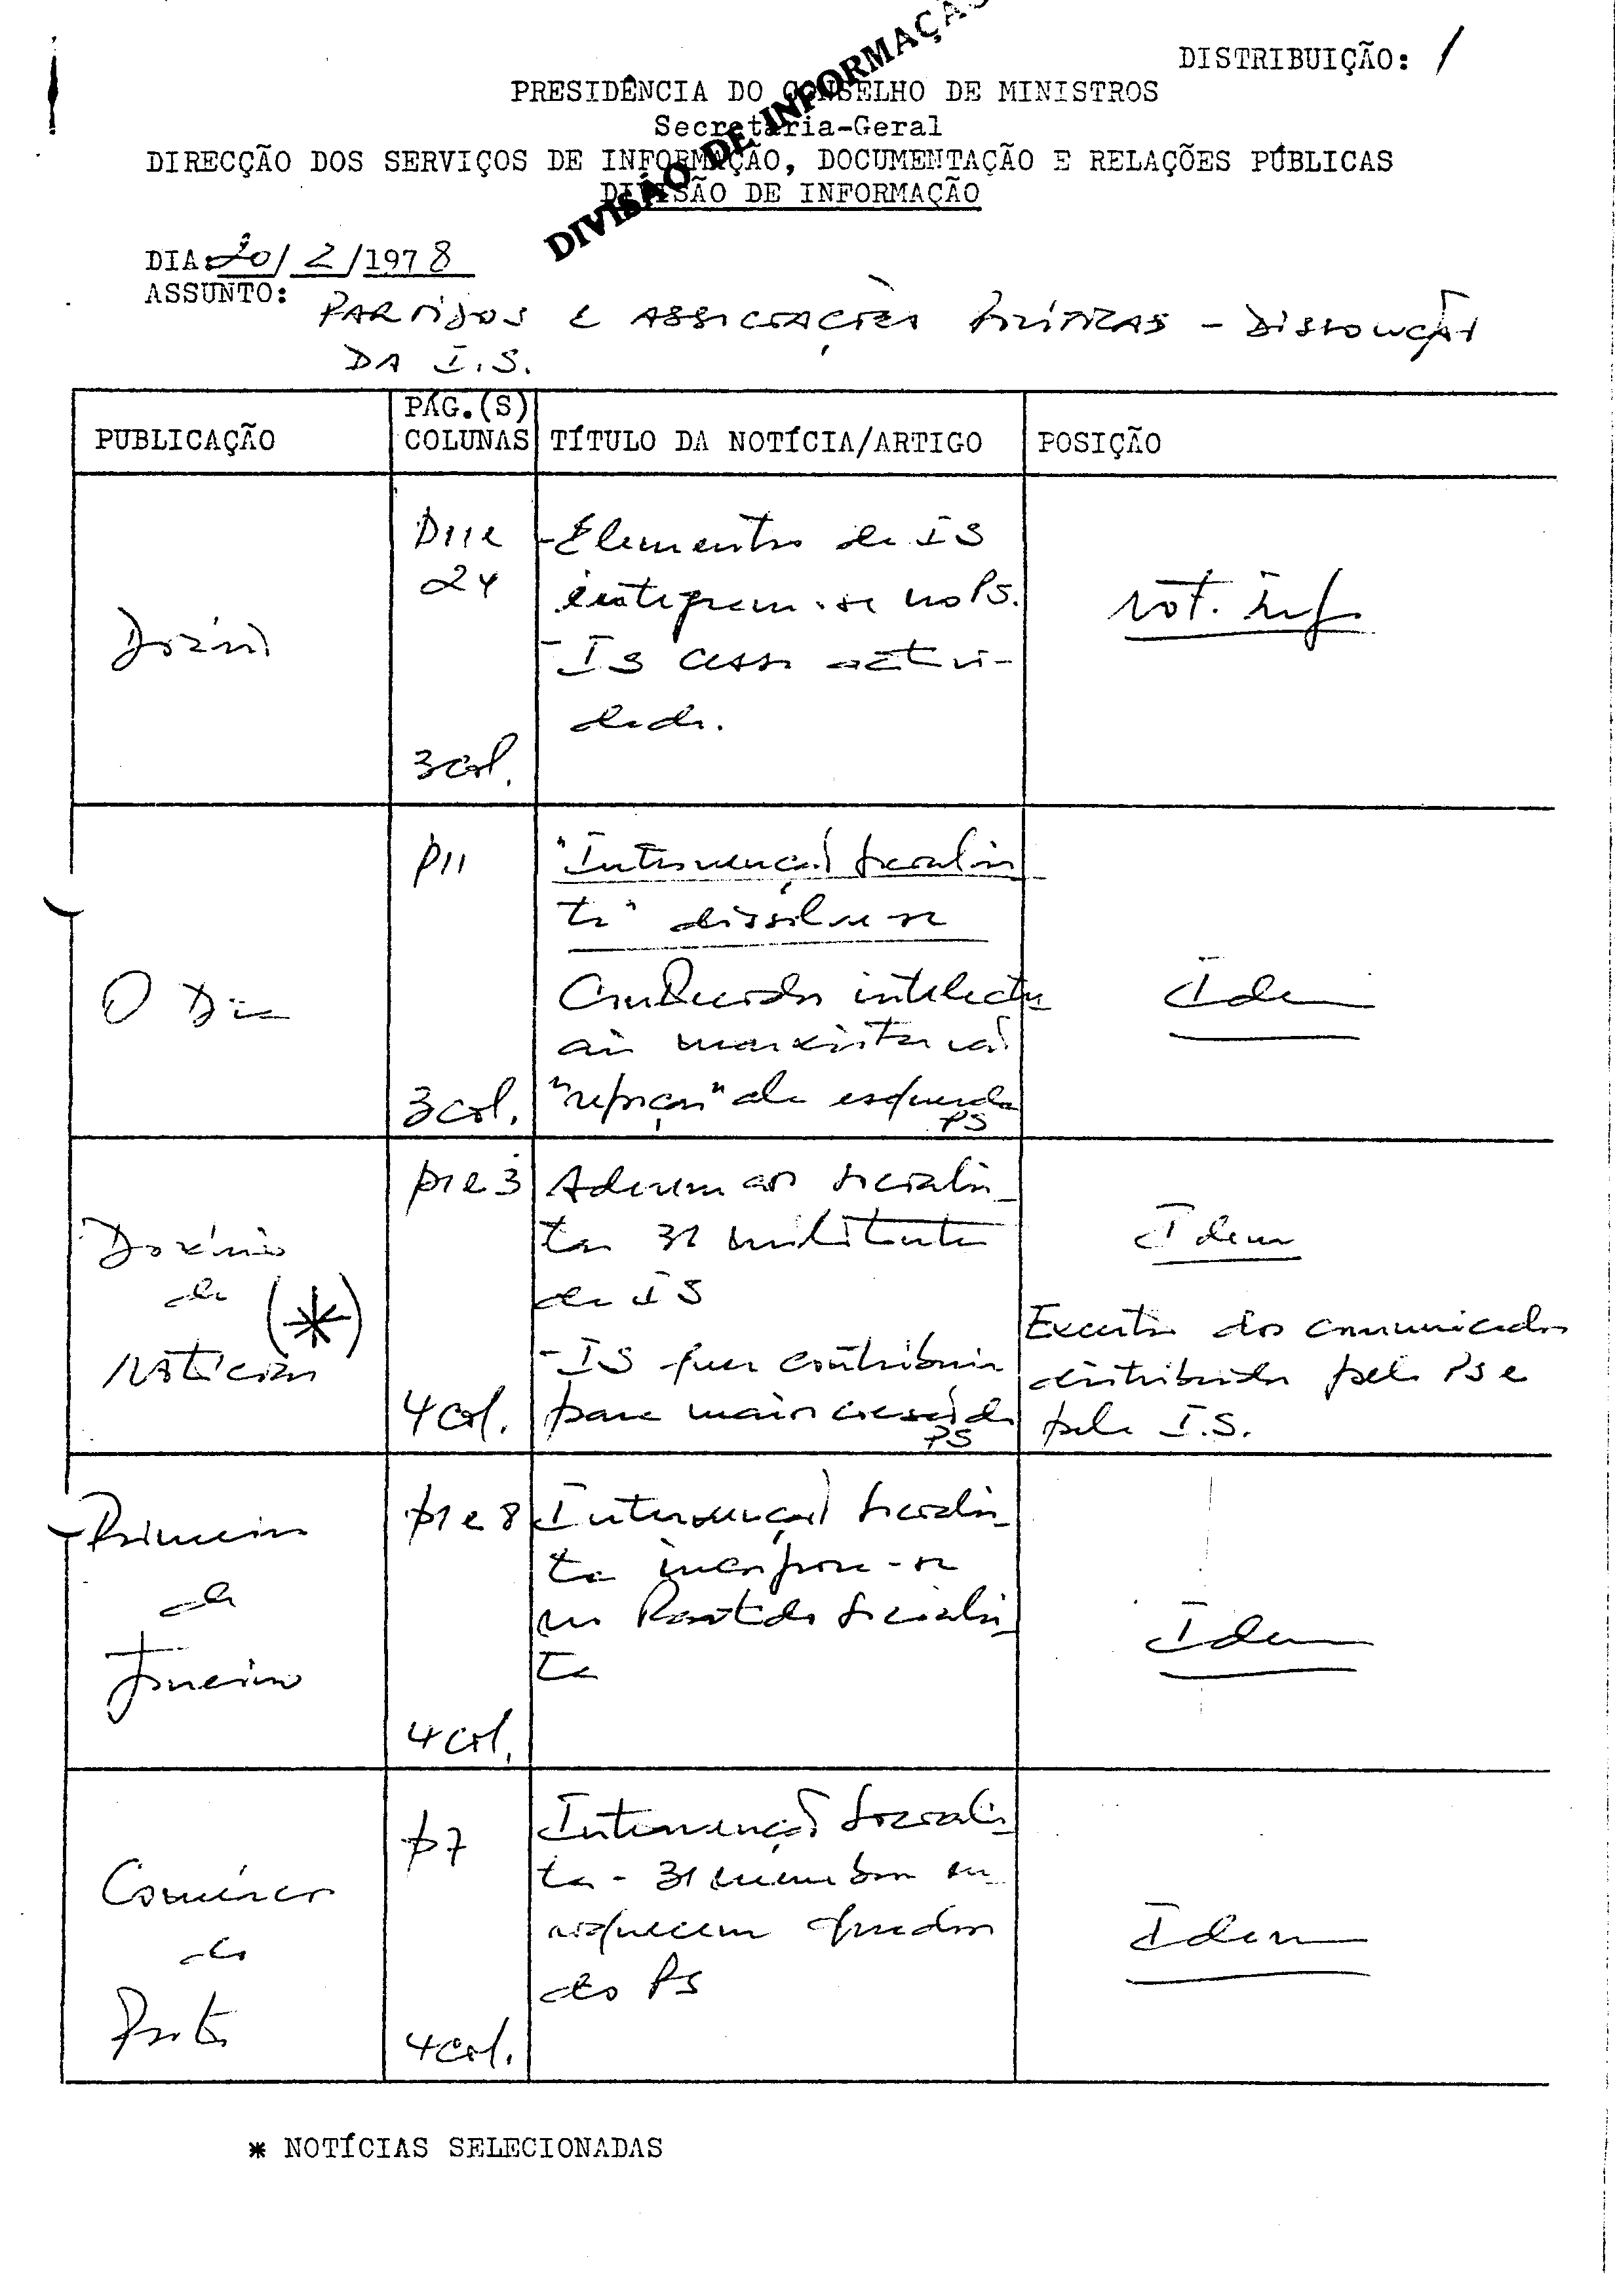 DISTRIBUIÇÃO: /
PRESIDÊNCIA DO CONSELHO DE MINISTROS
Secretaria-Geral
DIRECÇÃO DOS SERVIÇOS DE INFORMAÇÃO, DOCUMENTAÇÃO E RELAÇÕES PÚBLICAS
DIVISÃO DE INFORMAÇÃO
DIVISÃO DE INFORMAÇÃO
DIA: 20/2/1978
ASSUNTO: PARTIDOS E ASSOCIAÇÕES POLÍTICAS - DISSOLUÇÃO
DA I.S.
PUBLICAÇÃO
PÁG.(S)
COLUNAS
TÍTULO DA NOTÍCIA/ARTIGO
POSIÇÃO
Diário
24
3 col.
- Elementos da IS
integram-se no PS.
- IS cessa activi-
dade.
Not. Inf.
O Dia
p11
3 col.
"Intervenção Socialis
ta" dissolve-se
Conhecidos intelectu
ais marxistas vão
"reforçar" ala esquerda
PS
Idem
Diário
de
Notícias
(*)
p1 e 3
4 col.
Aderem aos socialis
tas 31 militantes
da IS
- IS quer contribuir
para maior coesão do
PS
Idem
Excertos dos comunicados
distribuidos pelo PS e
pela I.S.
Primeiro
de
Janeiro
p1 e 8
4 col.
Intervenção Socialis
ta incorpora-se
no Partido Socialis
ta
Idem
Comércio
do
Porto
p7
4 col.
Intervenção Socialis
ta - 31 membros en
riquecem quadros
do PS
Idem
* NOTÍCIAS SELECIONADAS